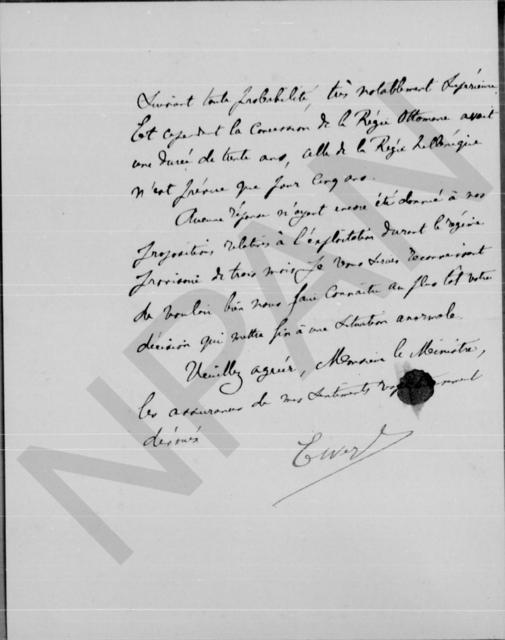 Suivant toute probabilité, très notablement supérieure.
Et cependant la Concession de la Régie Ottomane avait
une durée de trente ans, celle de la Régie hellénique
n'est prévue que pour cinq ans.
Aucune réponse n'ayant encore été donnée à nos
propositions relatives à l'exploitation durant le régime
provisoire de trois mois, je vous serais reconnaissant
de vouloir bien nous faire connaître au plus tôt votre
décision qui mettra fin à une situation anormale.
Veuillez agréer, Monsieur le Ministre,
les assurances de mes sentiments respectueusement
dévoués
NPAN